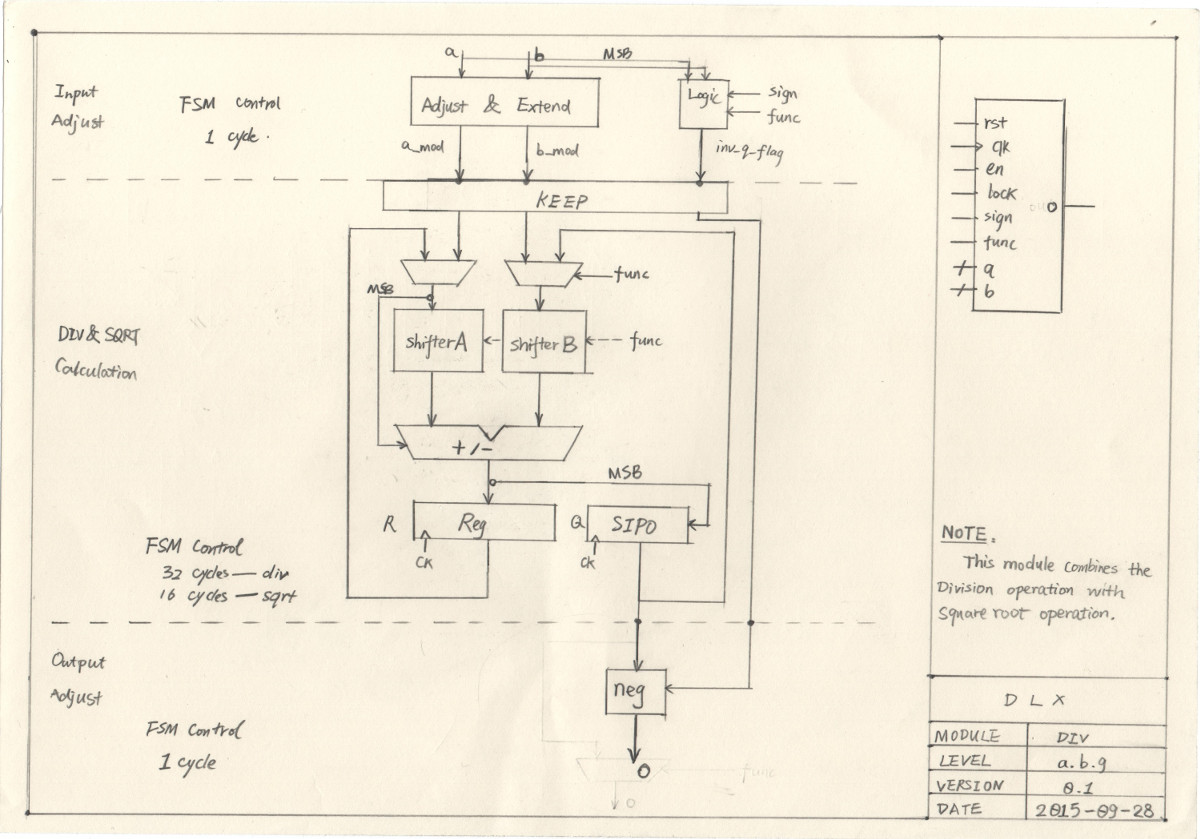 Input
Adjust
FSM Control
1 cycle.
a
b
MSB
Adjust & Extend
Logic
sign
func
a_mod
b_mod
inv_q_flag
KEEP
func
MSB
DIV & SQRT
Calculation
shifterA
shifterB
func
+/-
MSB
R
Reg
CK
Q
SIPO
CK
FSM Control
32 cycles — div
16 cycles — sqrt
Output
Adjust
FSM Control
1 cycle
neg
O
func
O
rst
clk
en
lock
sign
func
a
b
O
NOTE.
This module combines the
Division operation with
Square root operation.
DLX
MODULE DIV
LEVEL a.b.g
VERSION 0.1
DATE 2015-09-28